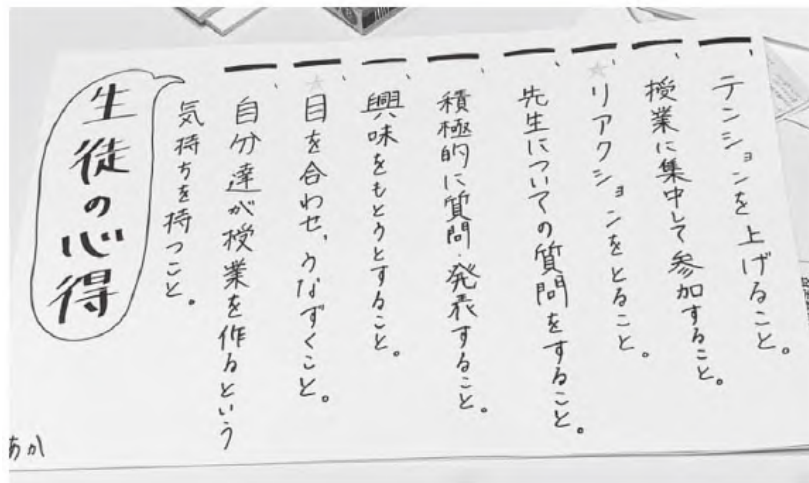 一、テンションを上げること。
一、授業に集中して参加すること。
一、リアクションをとること。
一、先生についての質問をすること。
一、積極的に質問・発表すること。
一、興味をもとうとすること。
一、目を合わせ、うなずくこと。
一、自分達が授業を作るという
気持ちを持つこと。
生徒の心得
あか